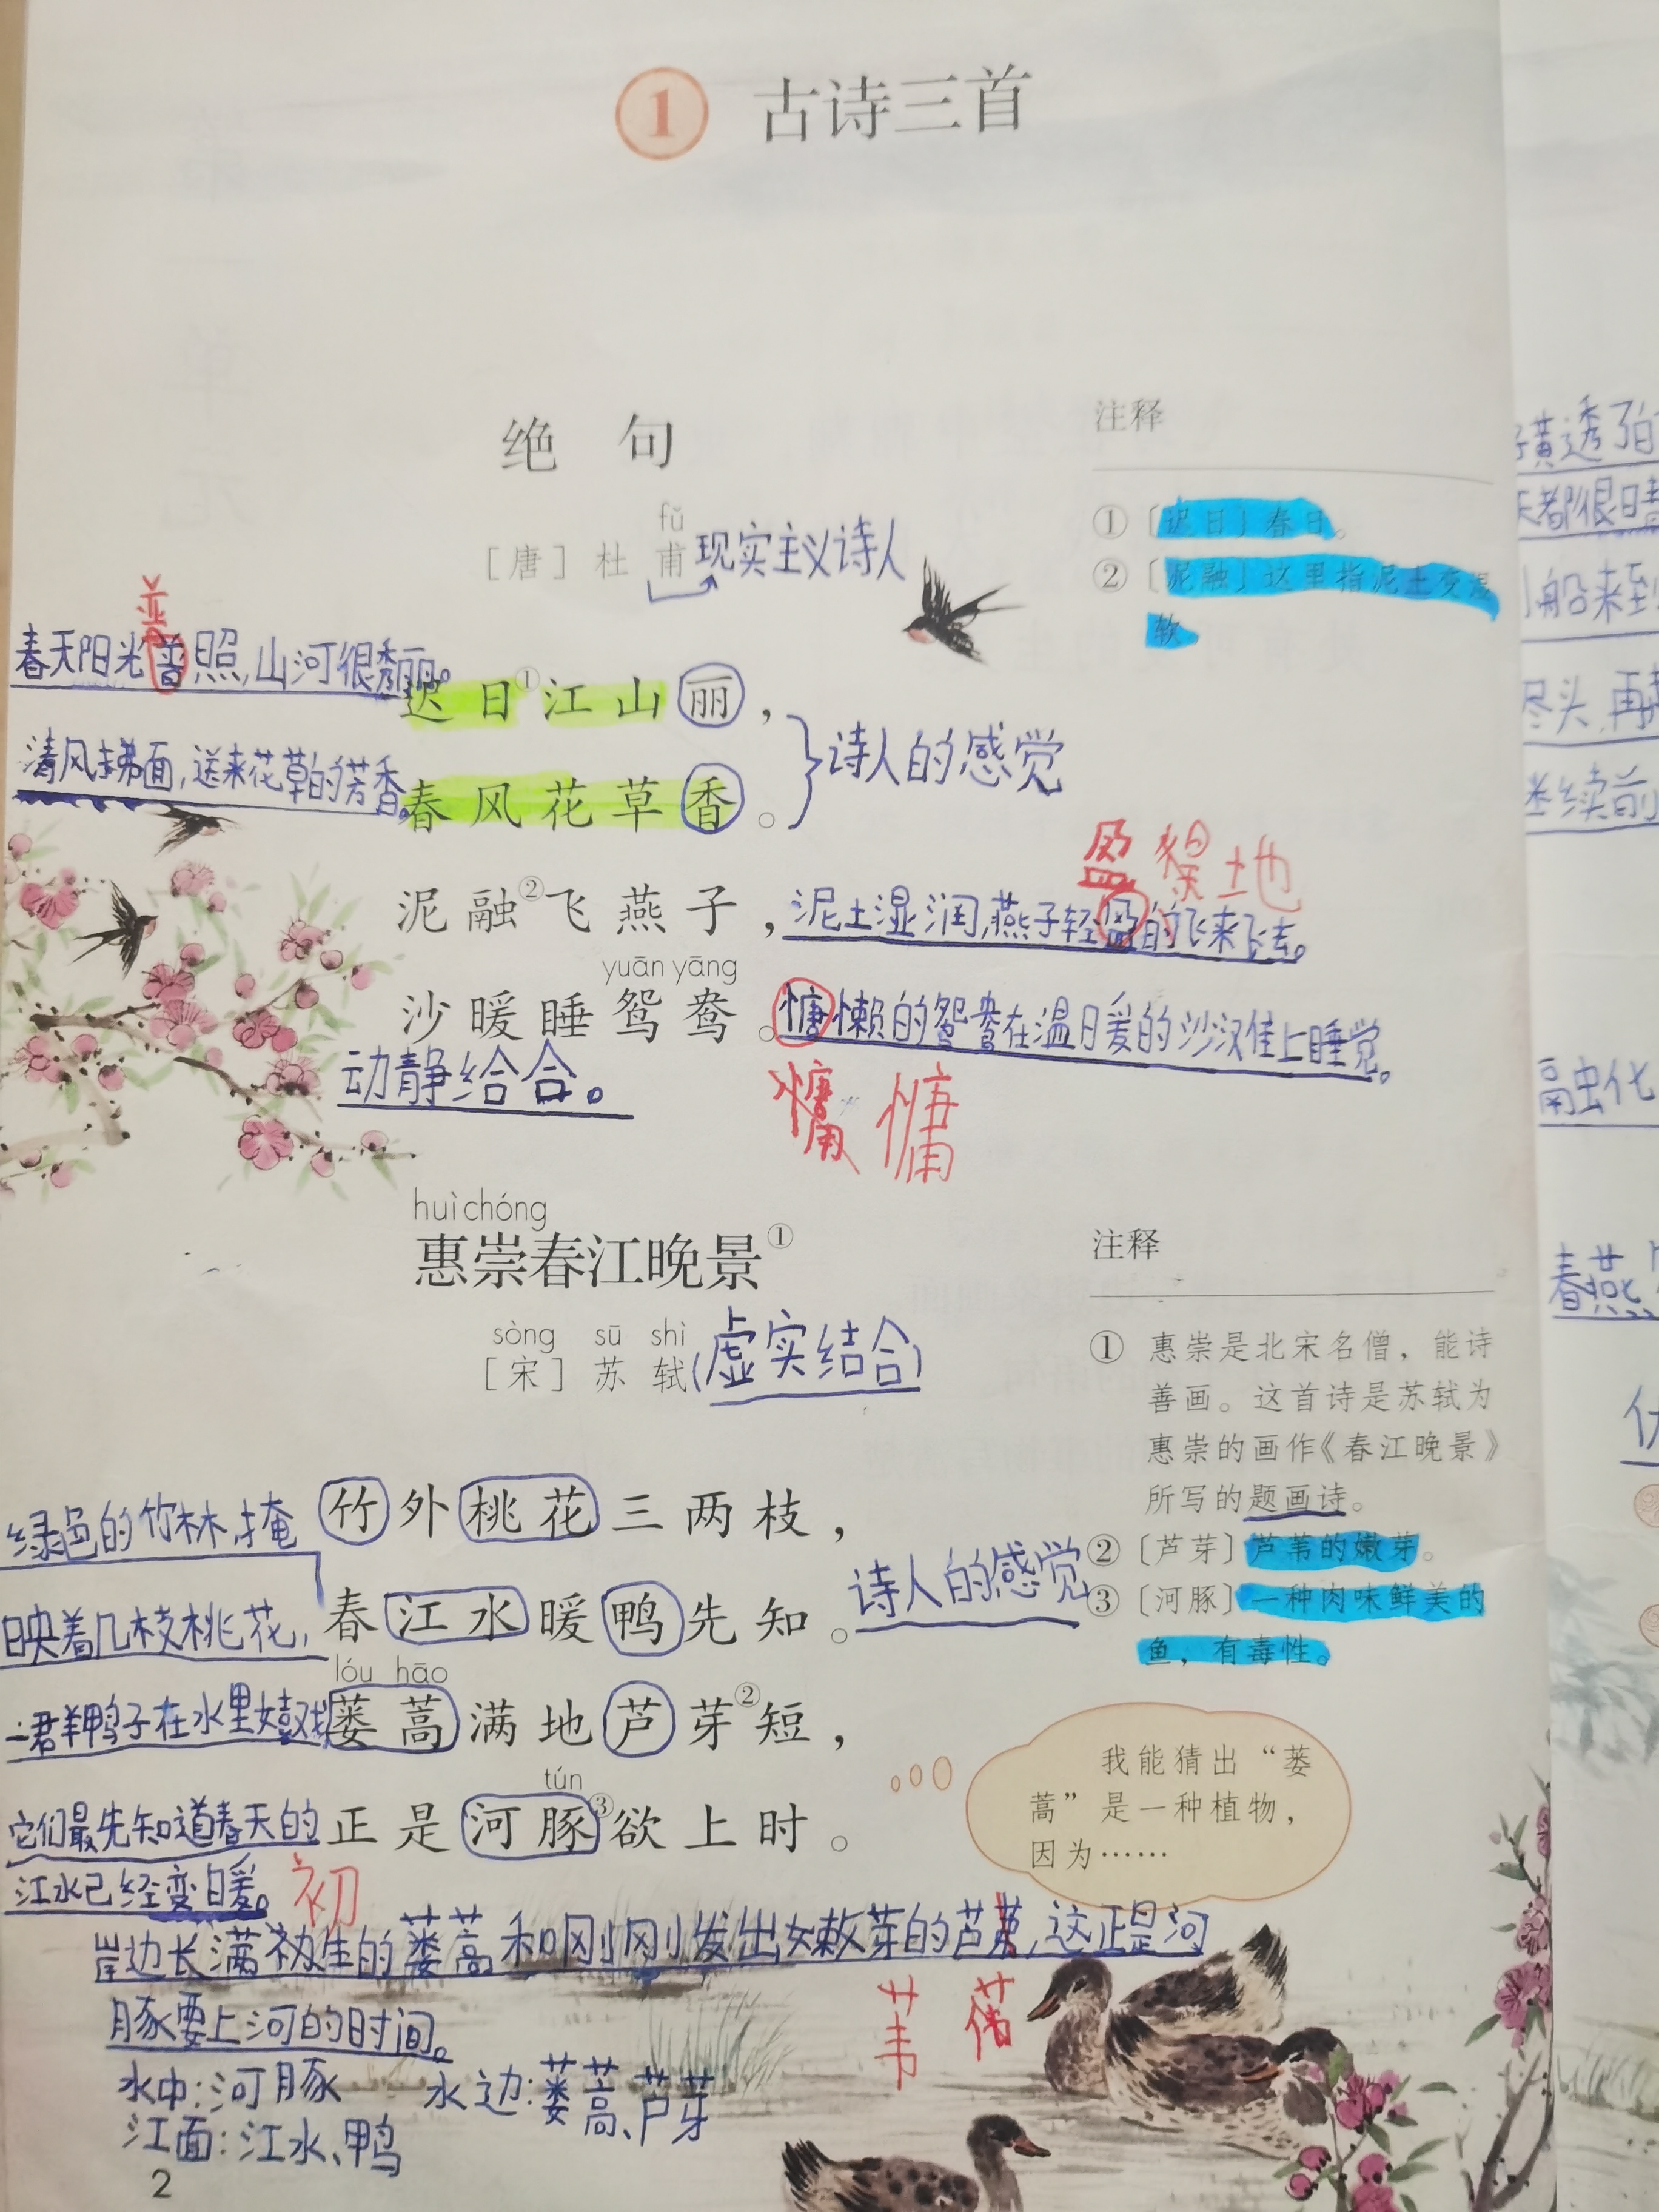 1 古诗三首
绝句
fǔ
［唐］杜甫 现实主义诗人
注释
①〔迟日〕春日。
②〔泥融〕这里指泥土变湿
软
普
春天阳光普照,山河很秀丽。
迟日①江山丽，
清风拂面,送来花草的芳香。
春风花草香。
诗人的感觉
盈 地
泥融②飞燕子，
泥土湿润,燕子轻盈的飞来飞去。
yuān yāng
沙暖睡鸳鸯。
慵懒的鸳鸯在温暖的沙滩上睡觉。
动静结合。
慵
huì chóng
惠崇春江晚景①
sòng sū shì
［宋］苏轼(虚实结合)
注释
① 惠崇是北宋名僧，能诗
善画。这首诗是苏轼为
惠崇的画作《春江晚景》
所写的题画诗。
②〔芦芽〕芦苇的嫩芽。
③〔河豚〕一种肉味鲜美的
鱼，有毒性。
绿色的竹林,掩
竹外桃花三两枝，
映着几枝桃花,
春江水暖鸭先知。
诗人的感觉
lóu hāo
一群鸭子在水里嬉戏
蒌蒿满地芦芽②短，
tún
它们最先知道春天的
正是河豚③欲上时。
江水已经变暖。
初
我能猜出“蒌
蒿”是一种植物，
因为……
岸边长满初生的蒌蒿和刚刚发出嫩芽的芦苇,这正是河
苇
豚要上河的时间。
水中:河豚 水边:蒌蒿、芦芽
江面:江水、鸭
2
黄透了
天都很晴
小船来到
尽头,再
继续前
融化
春燕